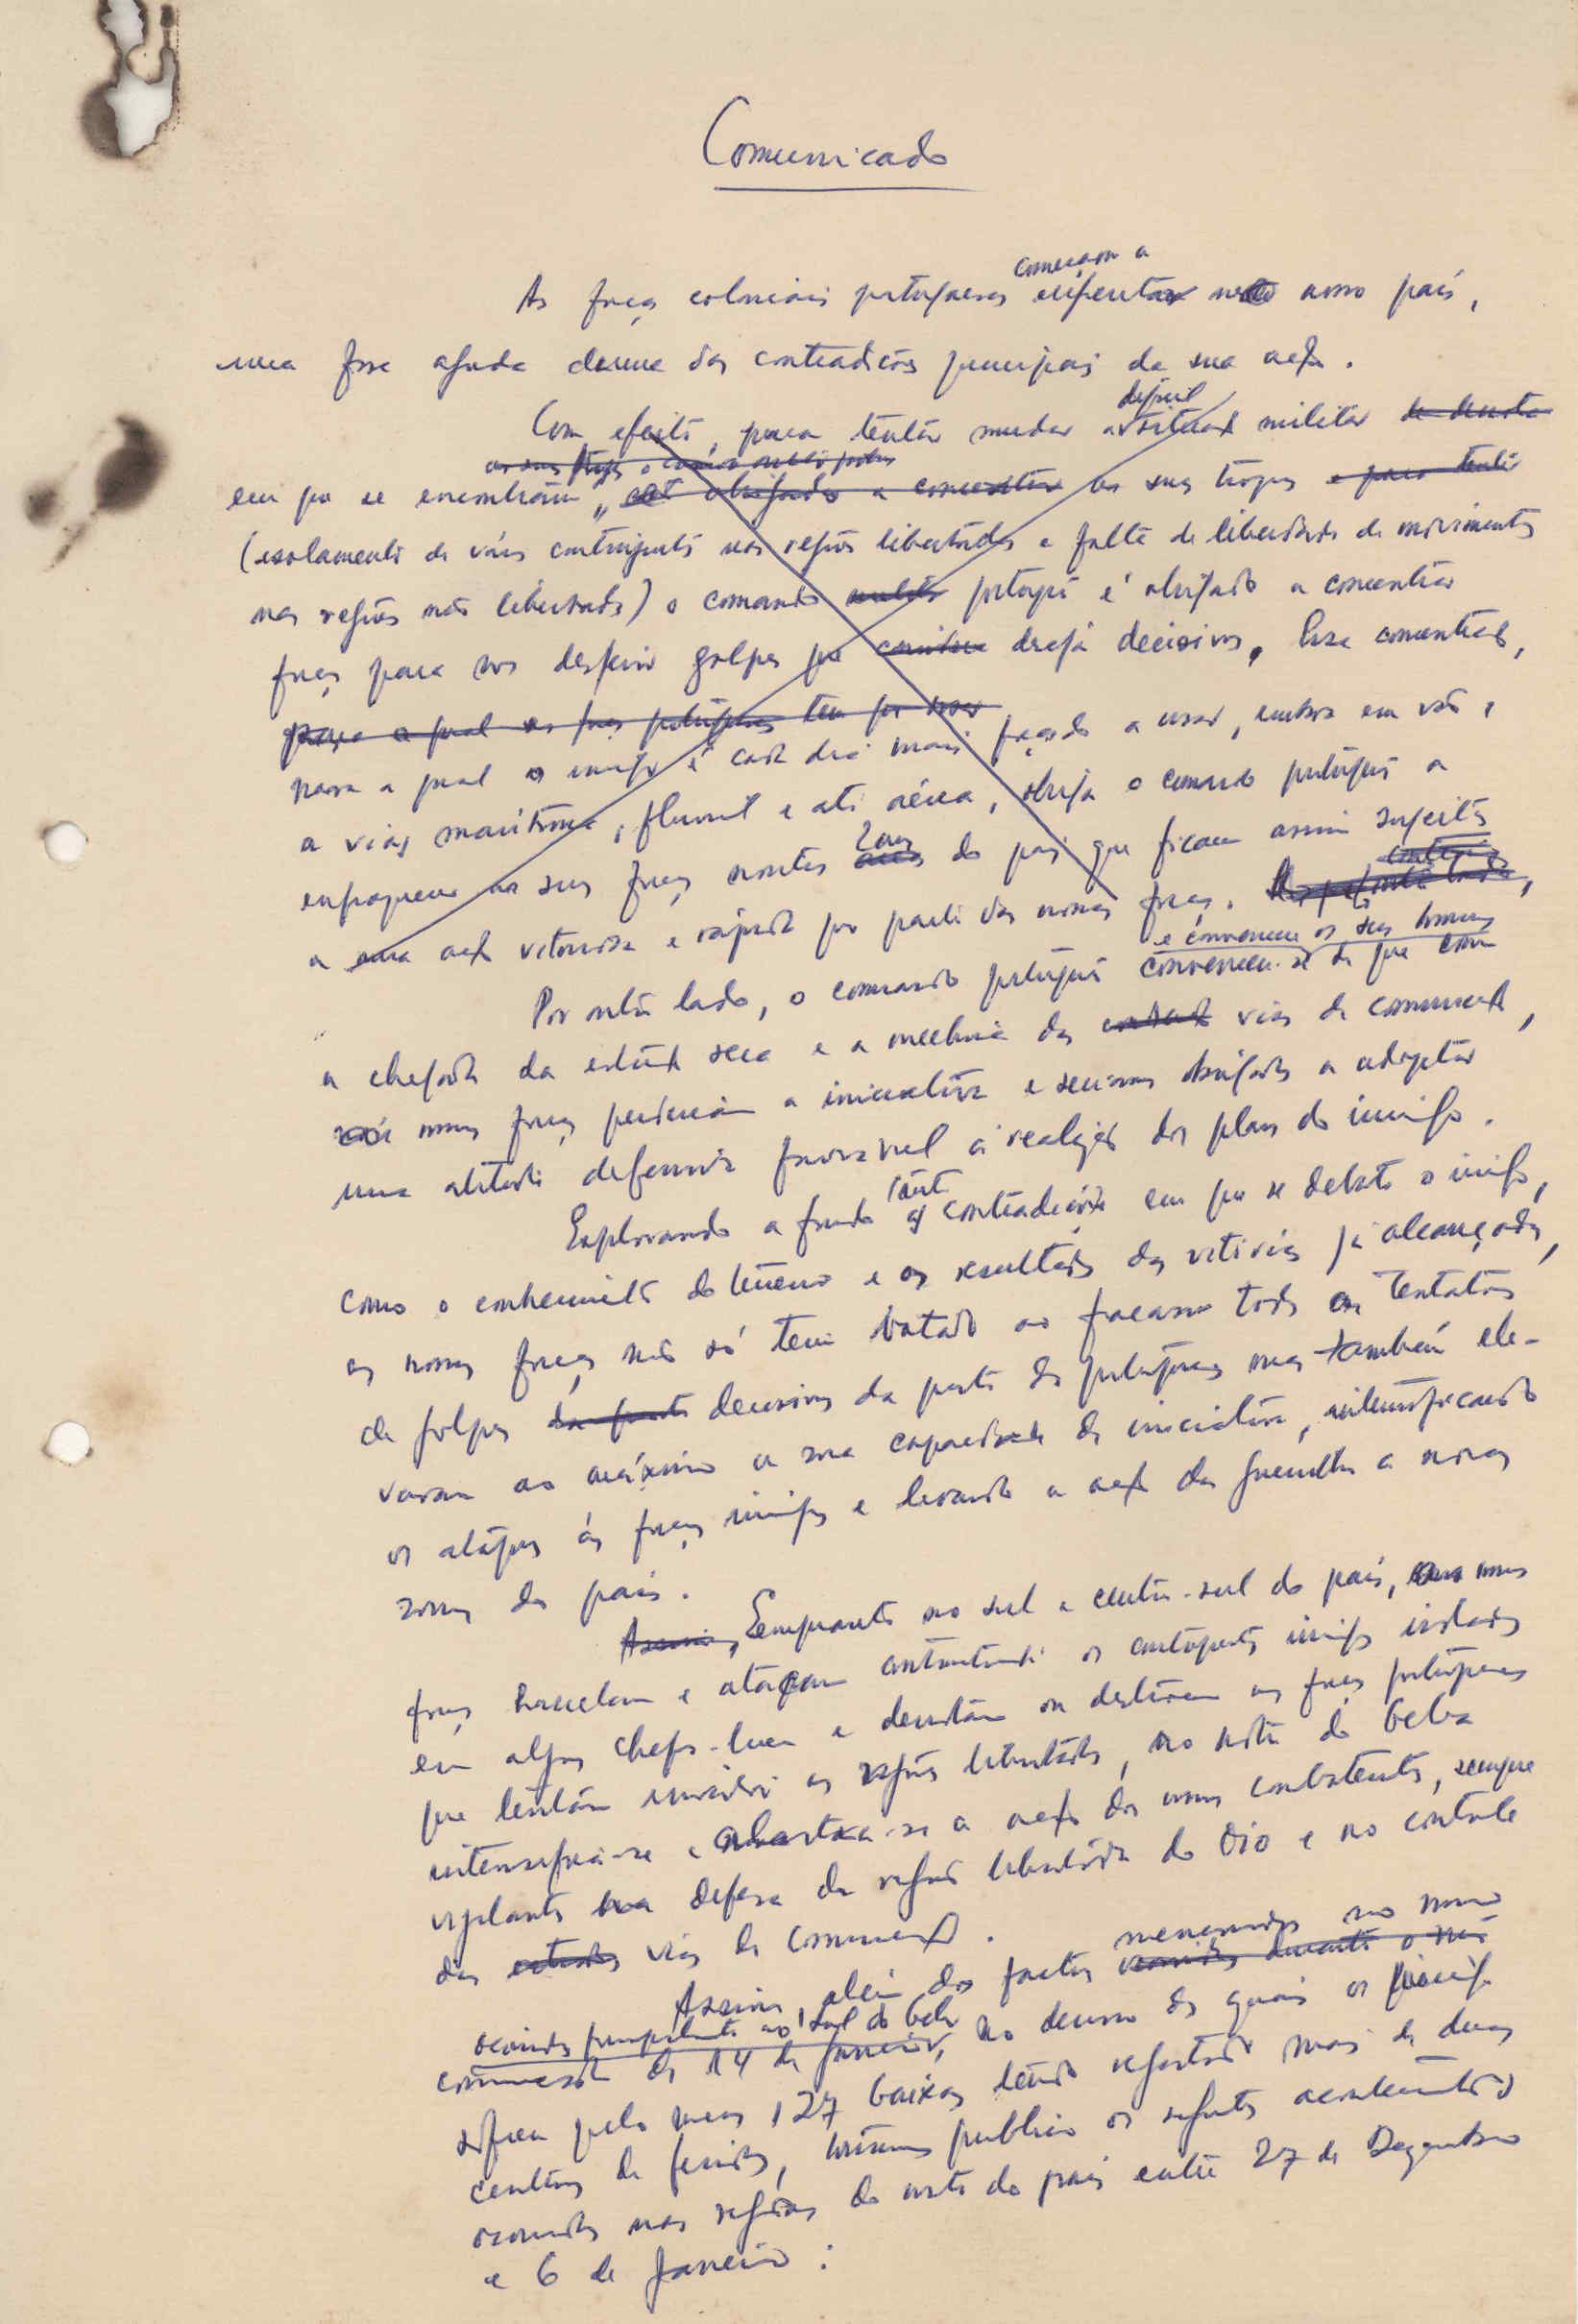 Comunicado
começam a
As forças coloniais portuguesas enfrentar no nosso país,
uma fase aguda duma das contradições principais da sua acção.
difícil
Com efeito, para tentar mudar a situação militar de derrota
as suas tropas o
em que se encontram, obrigado a concentrar as suas tropas e para tentar
(isolamento de vários contingentes nas regiões libertadas e falta de liberdade de movimentos
nas regiões não libertadas) o comando português é obrigado a concentrar
forças para nos desferir golpes que deseja decisivos. Essa concentração,
para a qual as forças portuguesas têm que usar
para a qual o inimigo é cada dia mais forçado a usar, embora em vão,
a vias marítima, fluvial e até aérea, obriga o comando português a
enfraquecer as suas forças noutras zonas do país que ficam assim sujeitas
a uma acção vitoriosa e rápida por parte das nossas forças.
e convenceu os seus homens
Por outro lado, o comando português convenceu-se de que com
a chegada da estação seca e a melhoria das vias de comunicação,
nossas forças perderiam a iniciativa e seriamos obrigados a adoptar
uma atitude defensiva favorável à realização dos planos do inimigo.
tanto
Explorando a fundo as contradições em que se debate o inimigo,
como o conhecimento do terreno e os resultados das vitórias já alcançadas,
as nossas forças não só têm votado ao fracasso todas as tentativas
de golpes da parte decisivos da parte dos portugueses mas também ele-
varam ao máximo a sua capacidade de iniciativa, intensificando
os ataques às forças inimigas e levando a acção da guerrilha a novas
zonas do país.
Assim, Enquanto no sul e centro-sul do país, as nossas
forças e atacam os contingentes inimigos isolados
em alguns chefs-lieu e derrotam ou destroem as forças portuguesas
que tentam invadir as regiões libertadas, no norte do Geba
intensifica-se e alastra-se a acção dos nossos combatentes, sempre
vigilantes na defesa da região libertada do Oio e no controle
das estradas vias de comunicação.
mencionados no nosso
Assim, além dos factos ocorridos durante o mês
ocorridos principalmente ao sul do Geba
comunicado de 14 de Janeiro, no decurso dos quais os inimigos
sofreu pelo menos 127 baixas tendo registado mais de duas
centenas de feridos, tornamos publico os seguintes acontecimentos
ocorridos nas regiões do norte do país entre 27 de Dezembro
e 6 de Janeiro: